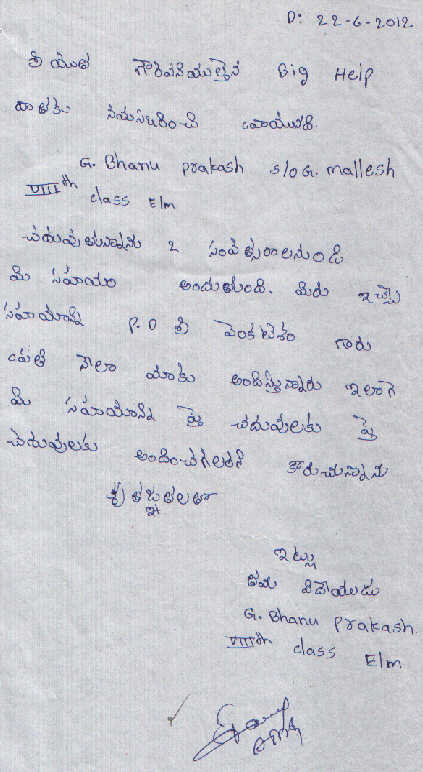 D: 22-6-2012
శ్రీ యుత గౌరవనీయులైన Big Help
దాతకు నమస్కరించి వ్రాయునది
G. Bhanu prakash s/o G. mallesh
VIIIth class Elm
చదువుతున్నాను 2 సంవత్సరాలనుండి
మీ సహాయం అందుతుంది. మీరు ఇచ్చే
సహాయాన్ని P.O శ్రీ వెంకటేశం గారు
ప్రతి నెలా మాకు అందిస్తున్నారు ఇలాగే
మీ సహాయాన్ని పై చదువులకు పై
చదువులకు అందించగలరని కోరుచున్నాను
కృతజ్ఞతలతో
ఇట్లు
తమ విదేయుడు
G. Bhanu prakash
VIIIth class Elm